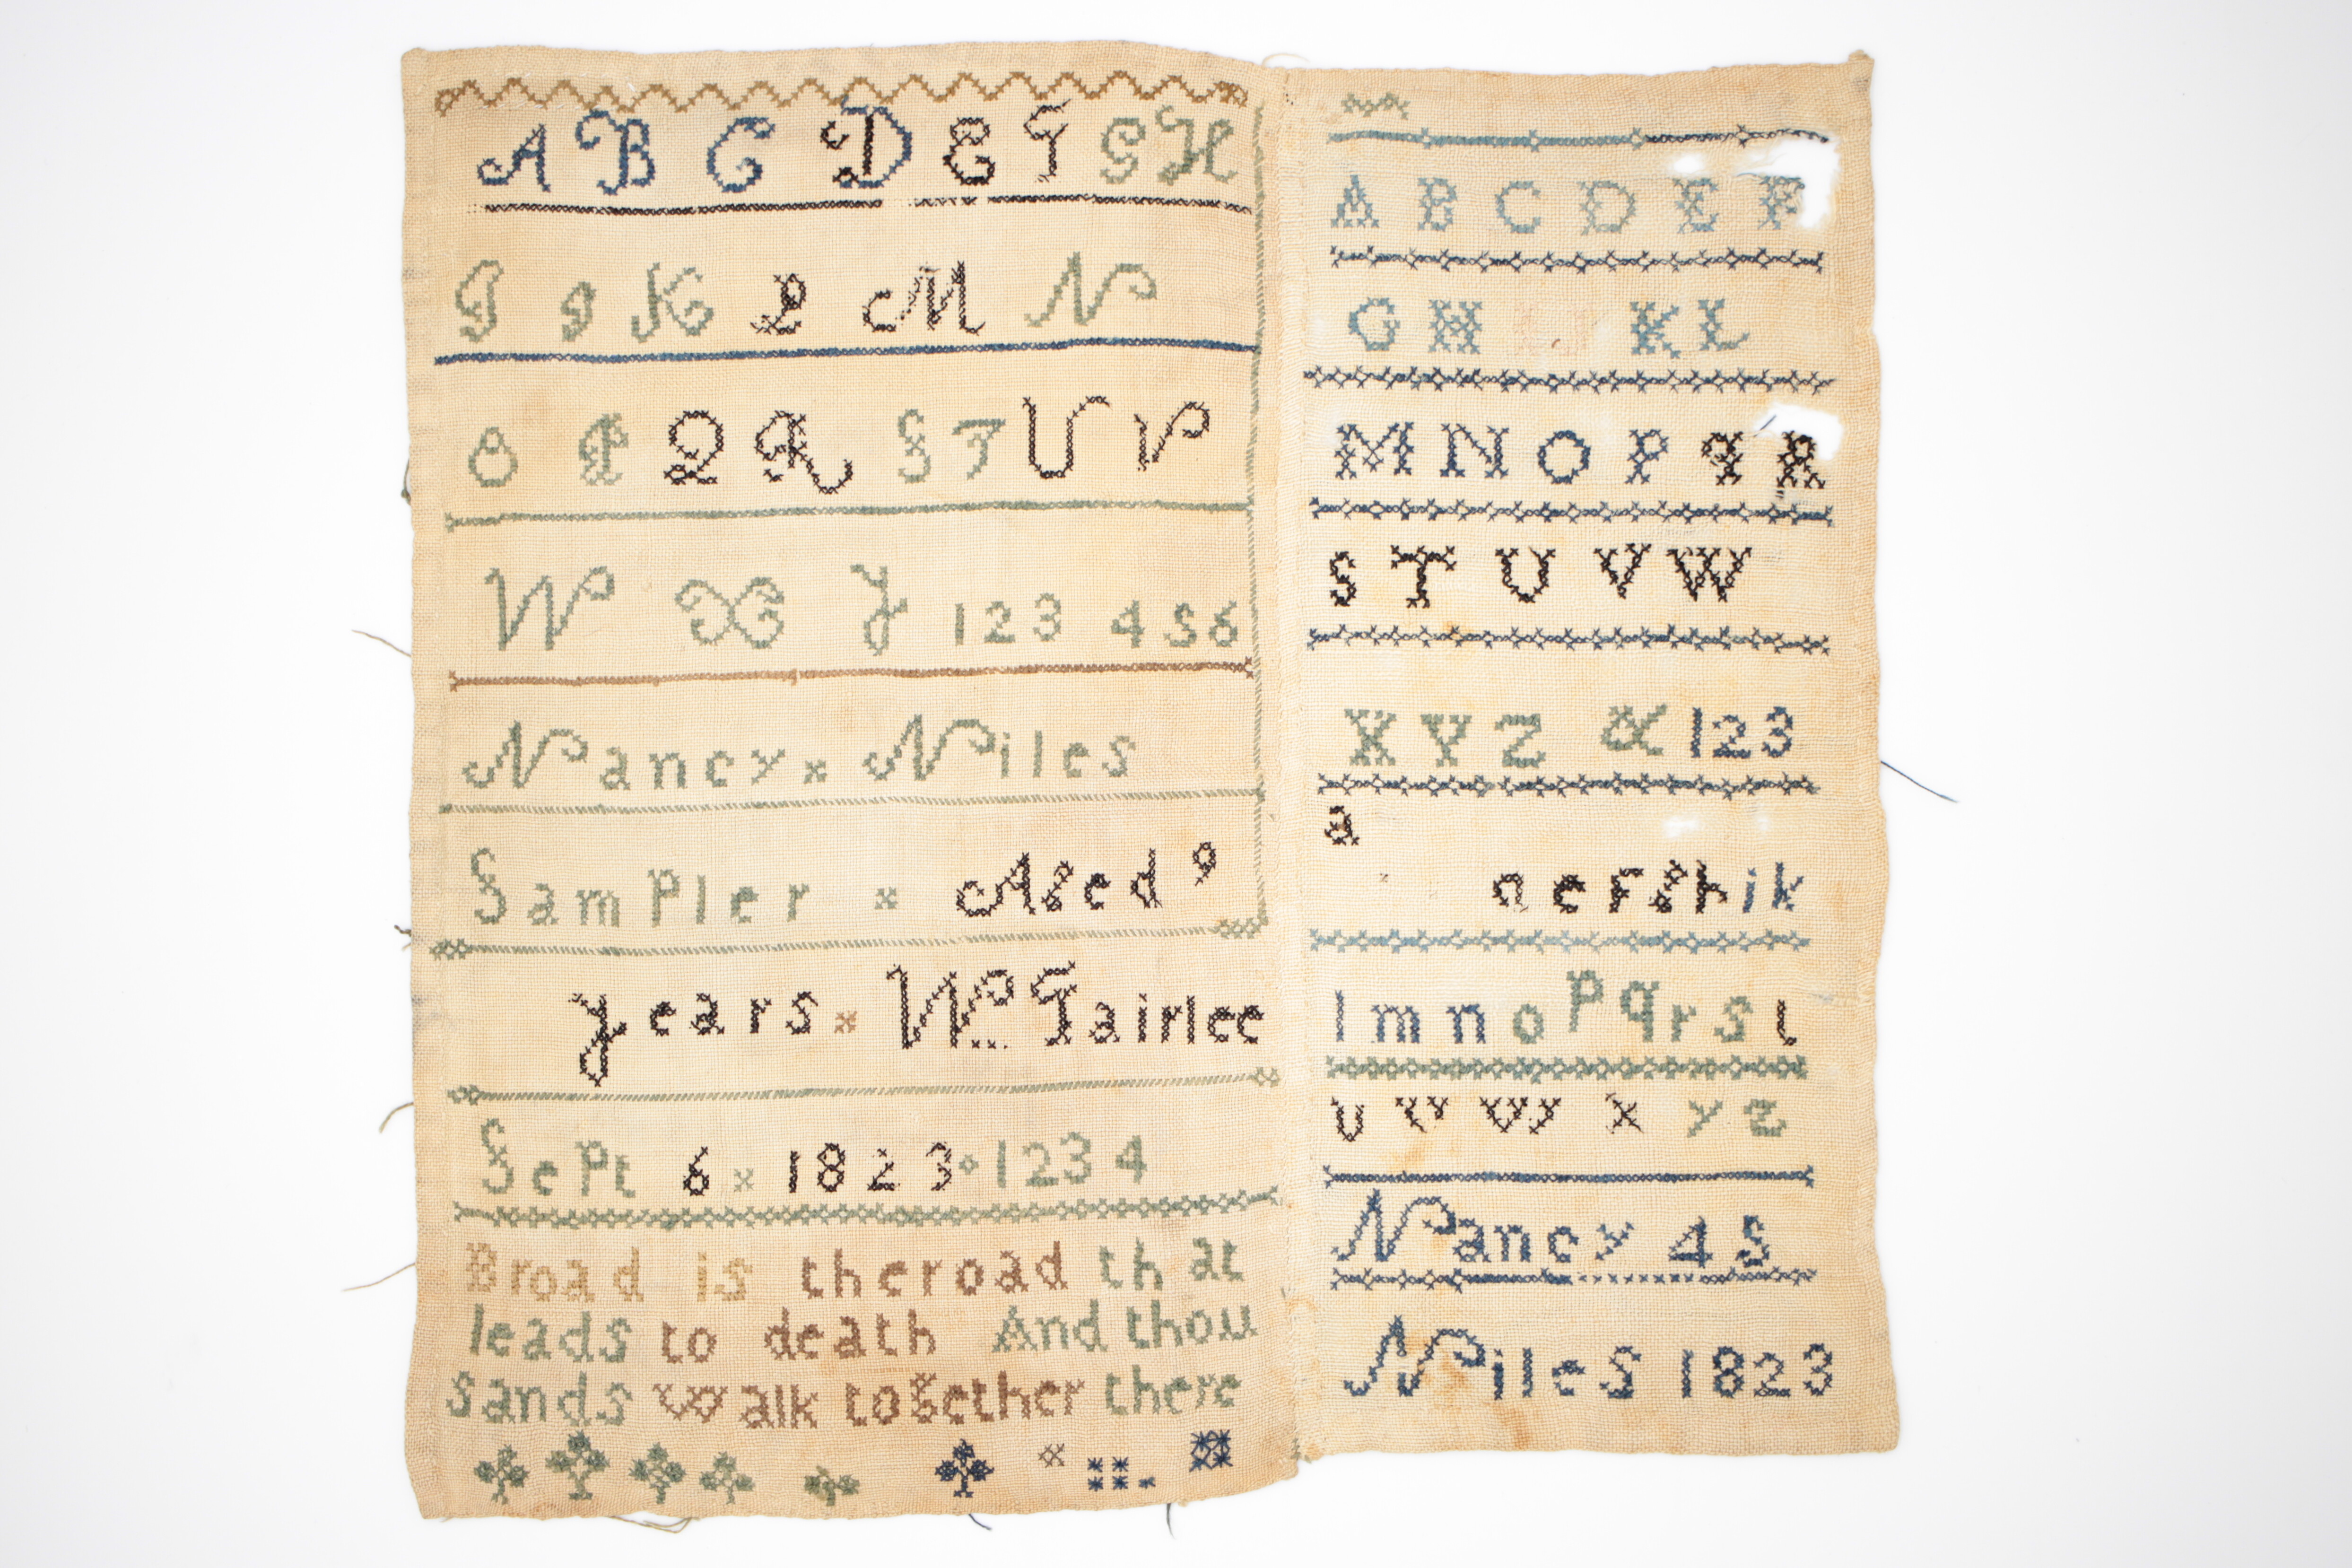 A B C D E F G H
I J K L M N
O P Q R S T U V
W X Y 1 2 3 4 5 6
Nancy x Niles
Sampler x Aged 9
years x W Fairlee
Sept 6 x 1823 1234
Broad is theroad that
leads to death And thou
sands walk together there
A B C D E F
G H K L
M N O P q R
S T U V W
X Y Z & 123
a
e f g h i k
l m n o p q r s t
u v w x y z
Nancy 4 5
Niles 1823